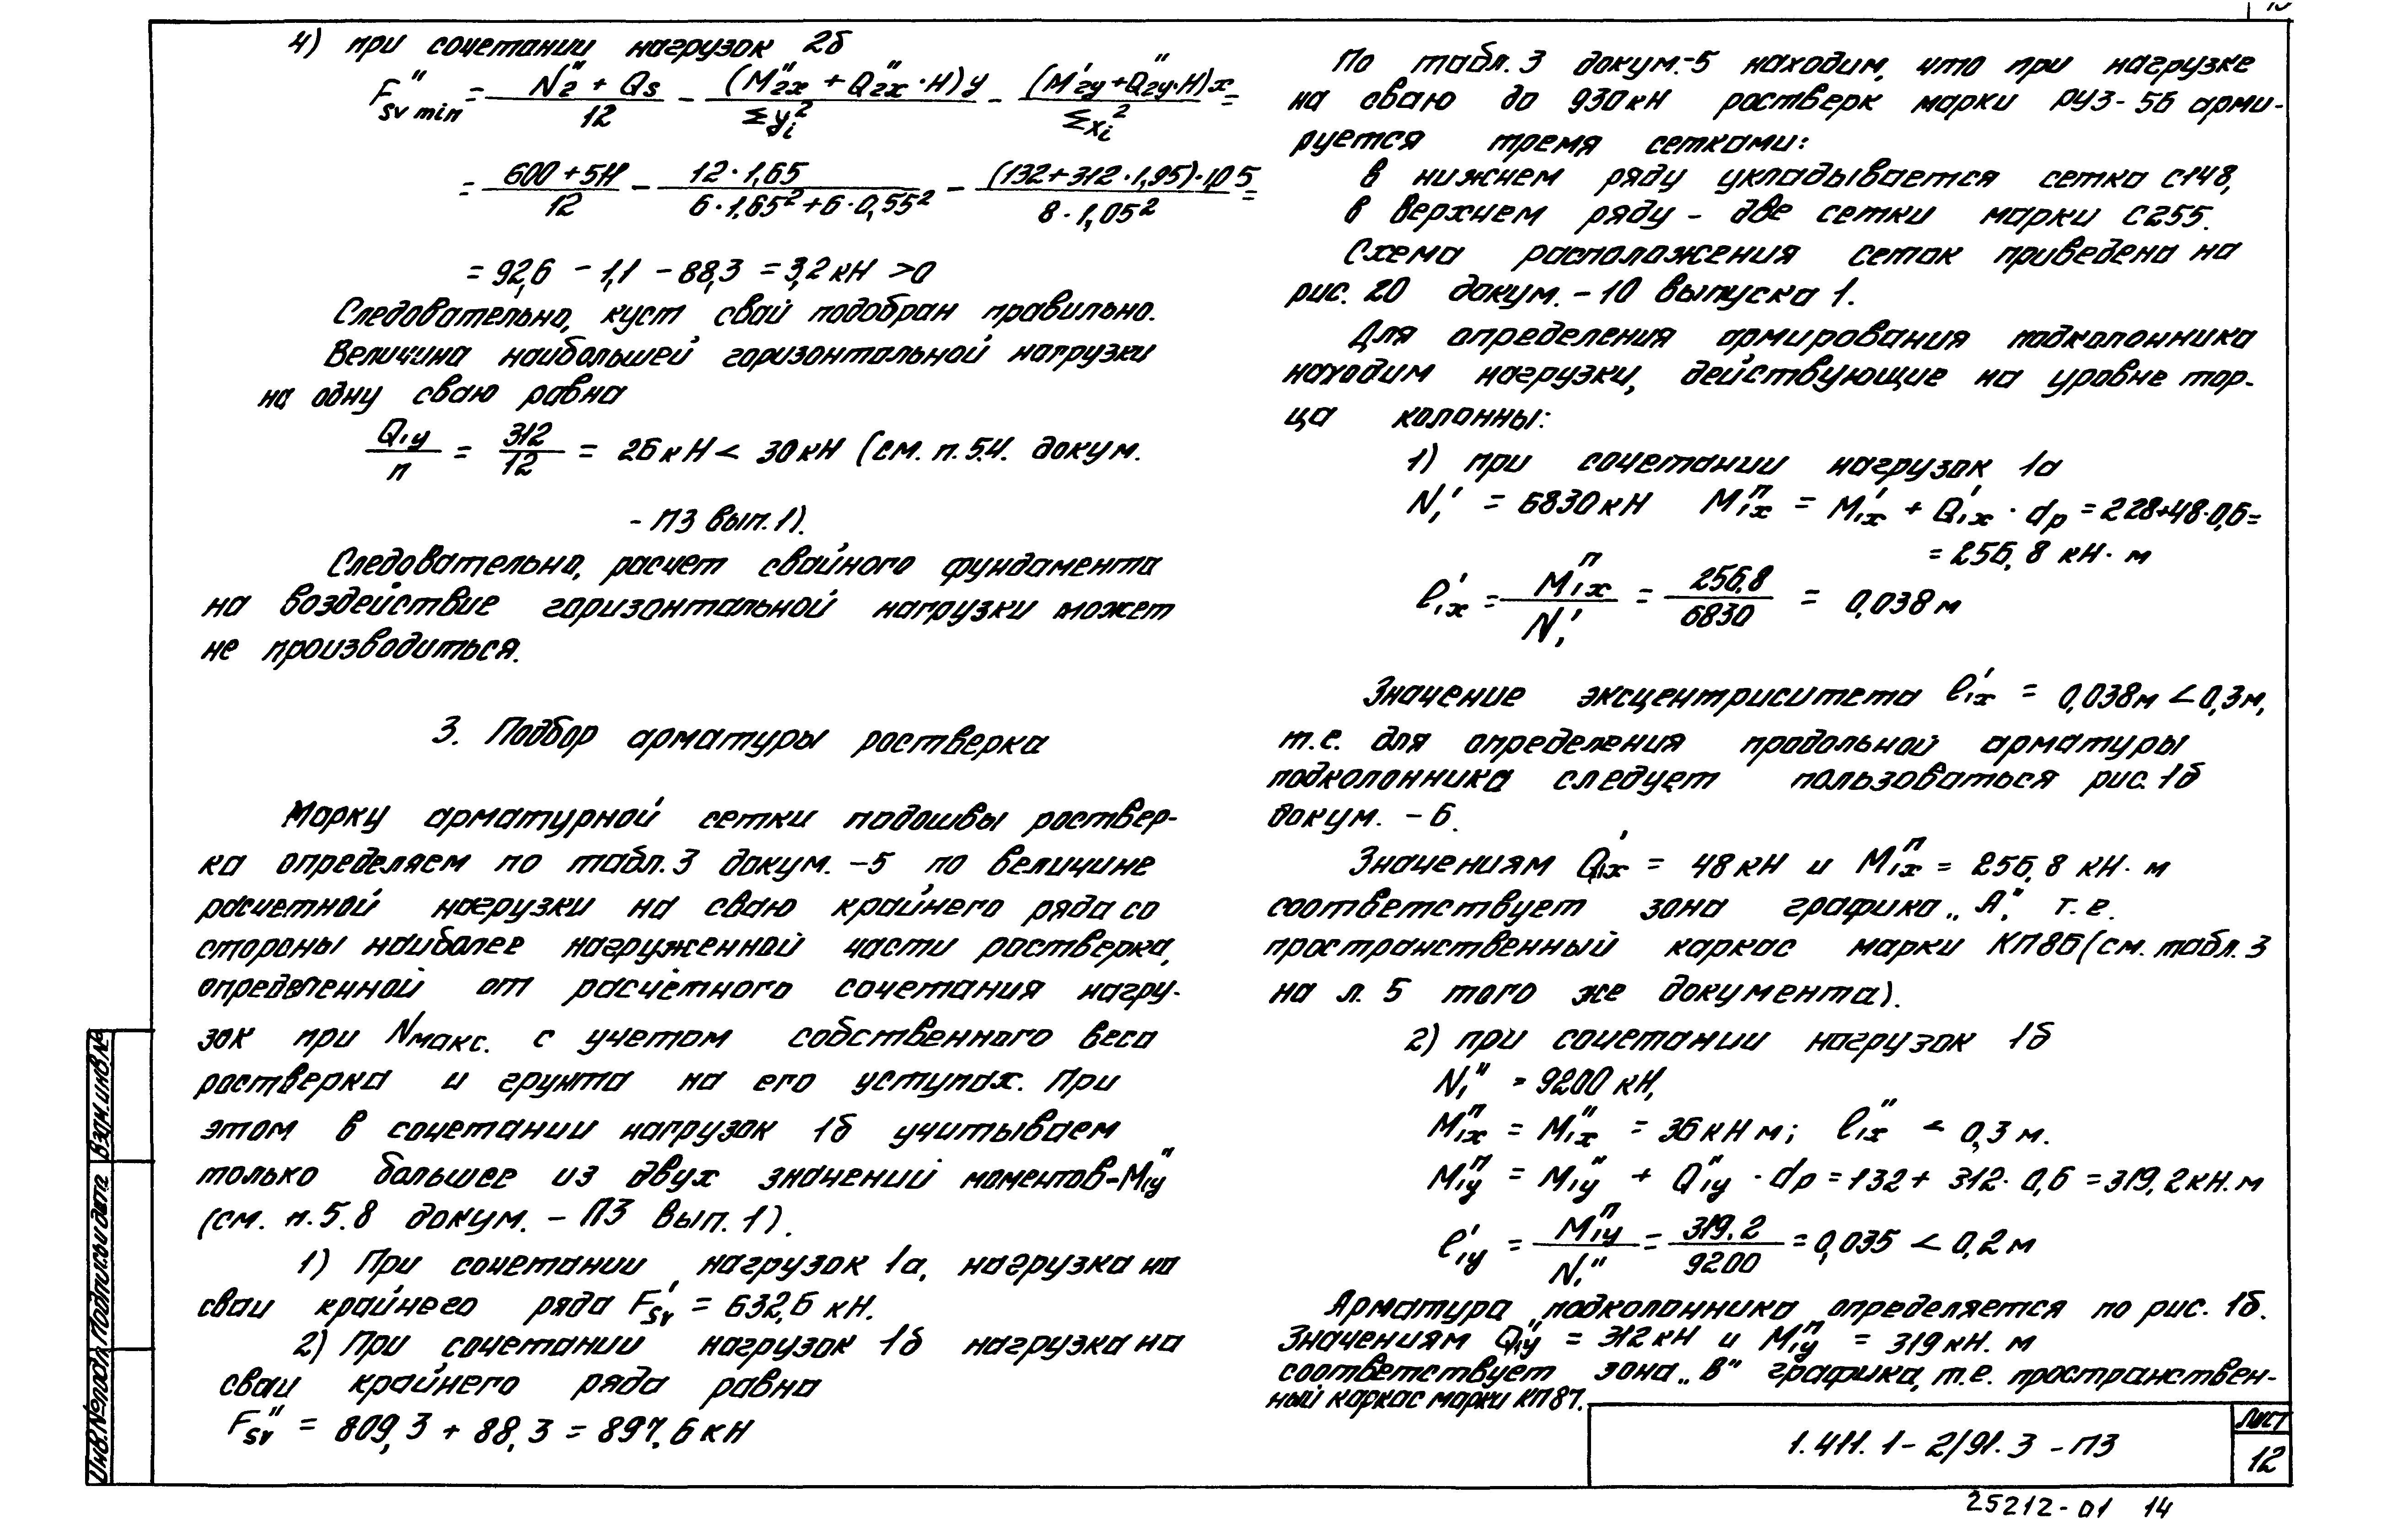 4) при сочетании нагрузок 2б
F''sv min = (N''2 + Qs)/12 - (M''2x + Q''2x · H)y/Σyi² - (M'2y + Q''2y · H)x/Σxi² =
= (600 + 511)/12 - (12 · 1,65)/(6 · 1,65² + 6 · 0,55²) - ((132 + 312 · 1,95) · 1,05)/(8 · 1,05²) =
= 92,6 - 1,1 - 88,3 = 3,2 кН > 0
Следовательно, куст свай подобран правильно.
Величина наибольшей горизонтальной нагрузки
на одну сваю равна
Q1y/n = 312/12 = 26 кН < 30 кН (см. п. 5.4. докум.
- ПЗ вып. 1).
Следовательно, расчет свайного фундамента
на воздействие горизонтальной нагрузки может
не производиться.
3. Подбор арматуры ростверка
Марку арматурной сетки подошвы роствер-
ка определяем по табл. 3 докум. -5 по величине
расчетной нагрузки на сваю крайнего ряда со
стороны наиболее нагруженной части ростверка,
определенной от расчётного сочетания нагру-
зок при Nмакс. с учетом собственного веса
ростверка и грунта на его уступах. При
этом в сочетании нагрузок 1б учитываем
только большее из двух значений моментов-M''1y
(см. п. 5.8 докум. - ПЗ вып. 1).
1) При сочетании нагрузок 1а, нагрузка на
сваи крайнего ряда F'sv = 632,6 кН.
2) При сочетании нагрузок 1б нагрузка на
сваи крайнего ряда равна
F''sv = 809,3 + 88,3 = 897,6 кН
По табл. 3 докум.-5 находим, что при нагрузке
на сваю до 930 кН ростверк марки РУЗ-56 арми-
руется тремя сетками:
в нижнем ряду укладывается сетка С148,
в верхнем ряду - две сетки марки С255.
Схема расположения сеток приведена на
рис. 20 докум. -10 выпуска 1.
Для определения армирования подколонника
находим нагрузки, действующие на уровне тор-
ца колонны:
1) при сочетании нагрузок 1а
N'1 = 6830 кН Mп1x = M'1x + Q'1x · dp = 228+48·0,6=
= 256,8 кН·м
e'1x = Mп1x/N'1 = 256,8/6830 = 0,038 м
Значение эксцентриситета e'1x = 0,038м < 0,3м,
т.е. для определения продольной арматуры
подколонника следует пользоваться рис. 1б
докум. -6.
Значениям Q'1x = 48 кН и Mп1x = 256,8 кН·м
соответствует зона графика „А", т.е.
пространственный каркас марки КП86 (см. табл. 3
на л. 5 того же документа).
2) при сочетании нагрузок 1б
N''1 = 9200 кН,
Mп1x = M''1x = 36 кН м; e''1x < 0,3 м.
Mп1y = M''1y + Q''1y · dp = 132 + 312 · 0,6 = 319,2 кН.м
e'1y = Mп1y/N''1 = 319,2/9200 = 0,035 < 0,2 м
Арматура подколонника определяется по рис. 1б.
Значениям Q''1y = 312 кН и Mп1y = 319 кН. м
соответствует зона „В" графика, т.е. пространствен-
ный каркас марки КП87.
Инв.№ подл. Подпись и дата Взам.инв.№
1.411.1-2/91.3-ПЗ
Лист
12
25212-01 14